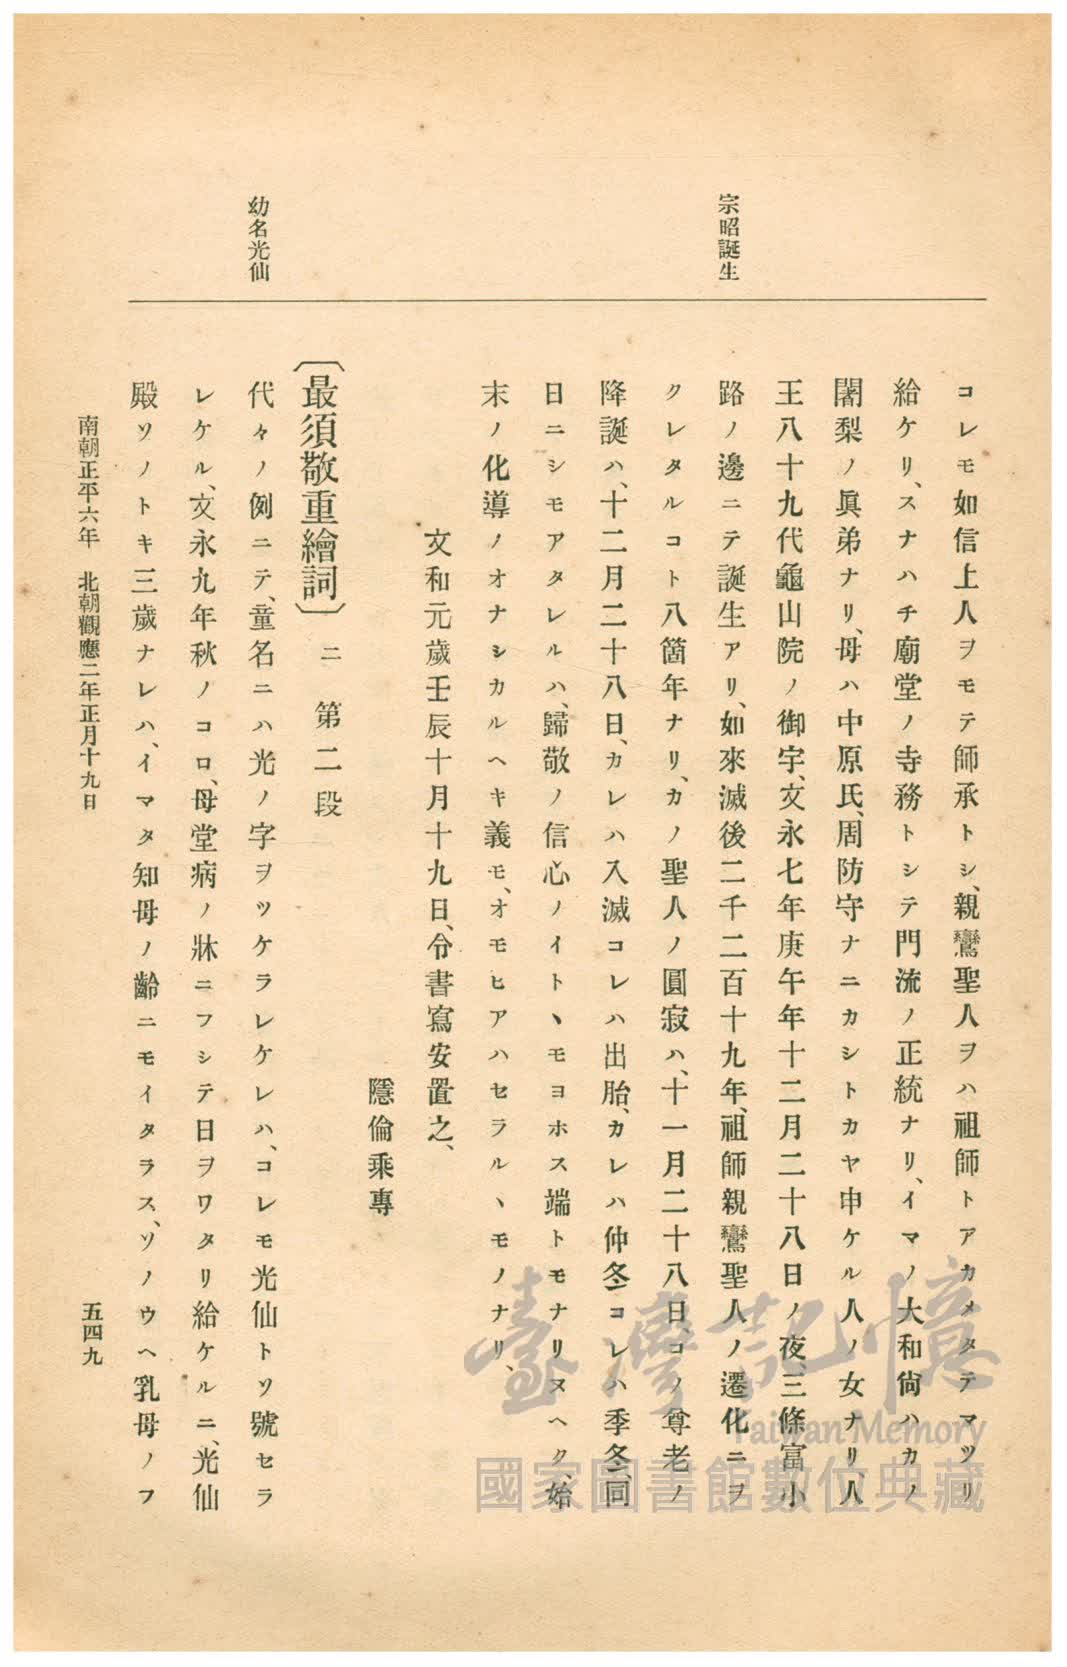 宗昭誕生
幼名光仙
コレモ如信上人ヲモテ師承トシ、親鸞聖人ヲハ祖師トアカメタテマツリ
給ケリ、スナハチ廟堂ノ寺務トシテ門流ノ正統ナリ、イマノ大和尙ハカノ
闍梨ノ眞弟ナリ、母ハ中原氏、周防守ナニカシトカヤ申ケル人ノ女ナリ、人
王八十九代龜山院ノ御宇、文永七年庚午年十二月二十八日ノ夜、三條富小
路ノ邊ニテ誕生アリ、如來滅後二千二百十九年、祖師親鸞聖人ノ遷化ニヲ
クレタルコト八箇年ナリ、カノ聖人ノ圓寂ハ、十一月二十八日、コノ尊老ノ
降誕ハ、十二月二十八日、カレハ入滅コレハ出胎、カレハ仲冬コレハ季冬、同
日ニシモアタレルハ、歸敬ノ信心ノイトヽモヨホス端トモナリヌヘク、始
末ノ化導ノオナシカルヘキ義モ、オモヒアハセラルヽモノナリ、
文和元歲壬辰十月十九日、令書寫安置之、
隱倫乘專
〔最須敬重繪詞〕二　第二段
代々ノ例ニテ、童名ニハ光ノ字ヲツケラレケレハ、コレモ光仙トソ號セラ
レケル、文永九年秋ノコロ、母堂病ノ牀ニフシテ日ヲワタリ給ケルニ、光仙
殿ソノトキ三歲ナレハ、イマタ知母ノ齡ニモイタラス、ソノウヘ乳母ノフ
南朝正平六年　北朝觀應二年正月十九日
五四九
臺灣記憶
Taiwan Memory
國家圖書館數位典藏